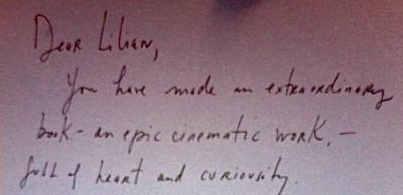 Dear Lilian,
You have made an extraordinary
book - an epic cinematic work, -
full of heart and curiosity.